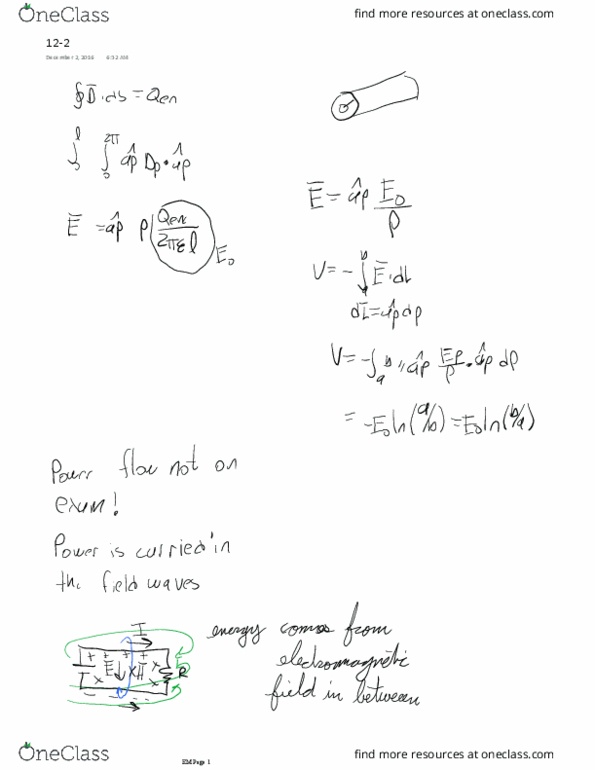 OneClass
find more resources at oneclass.com
12-2
December 2, 2016 6:52 AM
∮D̄·ds = Qen
∫₀^l ∫₀^2π âρ Dρ·âρ
Ē = âρ ρ Qen/2πεl
E₀
Ē = âρ E₀/ρ
V = -∫ₐᵇ Ē·dl
dL̄ = âρ dρ
V = -∫ₐᵇ âρ Eρ/ρ · âρ dρ
= -E₀ ln(a/b) = E₀ ln(b/a)
Powrr flow not on
exam!
Power is curried in
the field waves
I
+ + + +
E ↓ x H x R
- - - -
energy comes from
electromagnetic
field in between
OneClass
EM Page 1
find more resources at oneclass.com